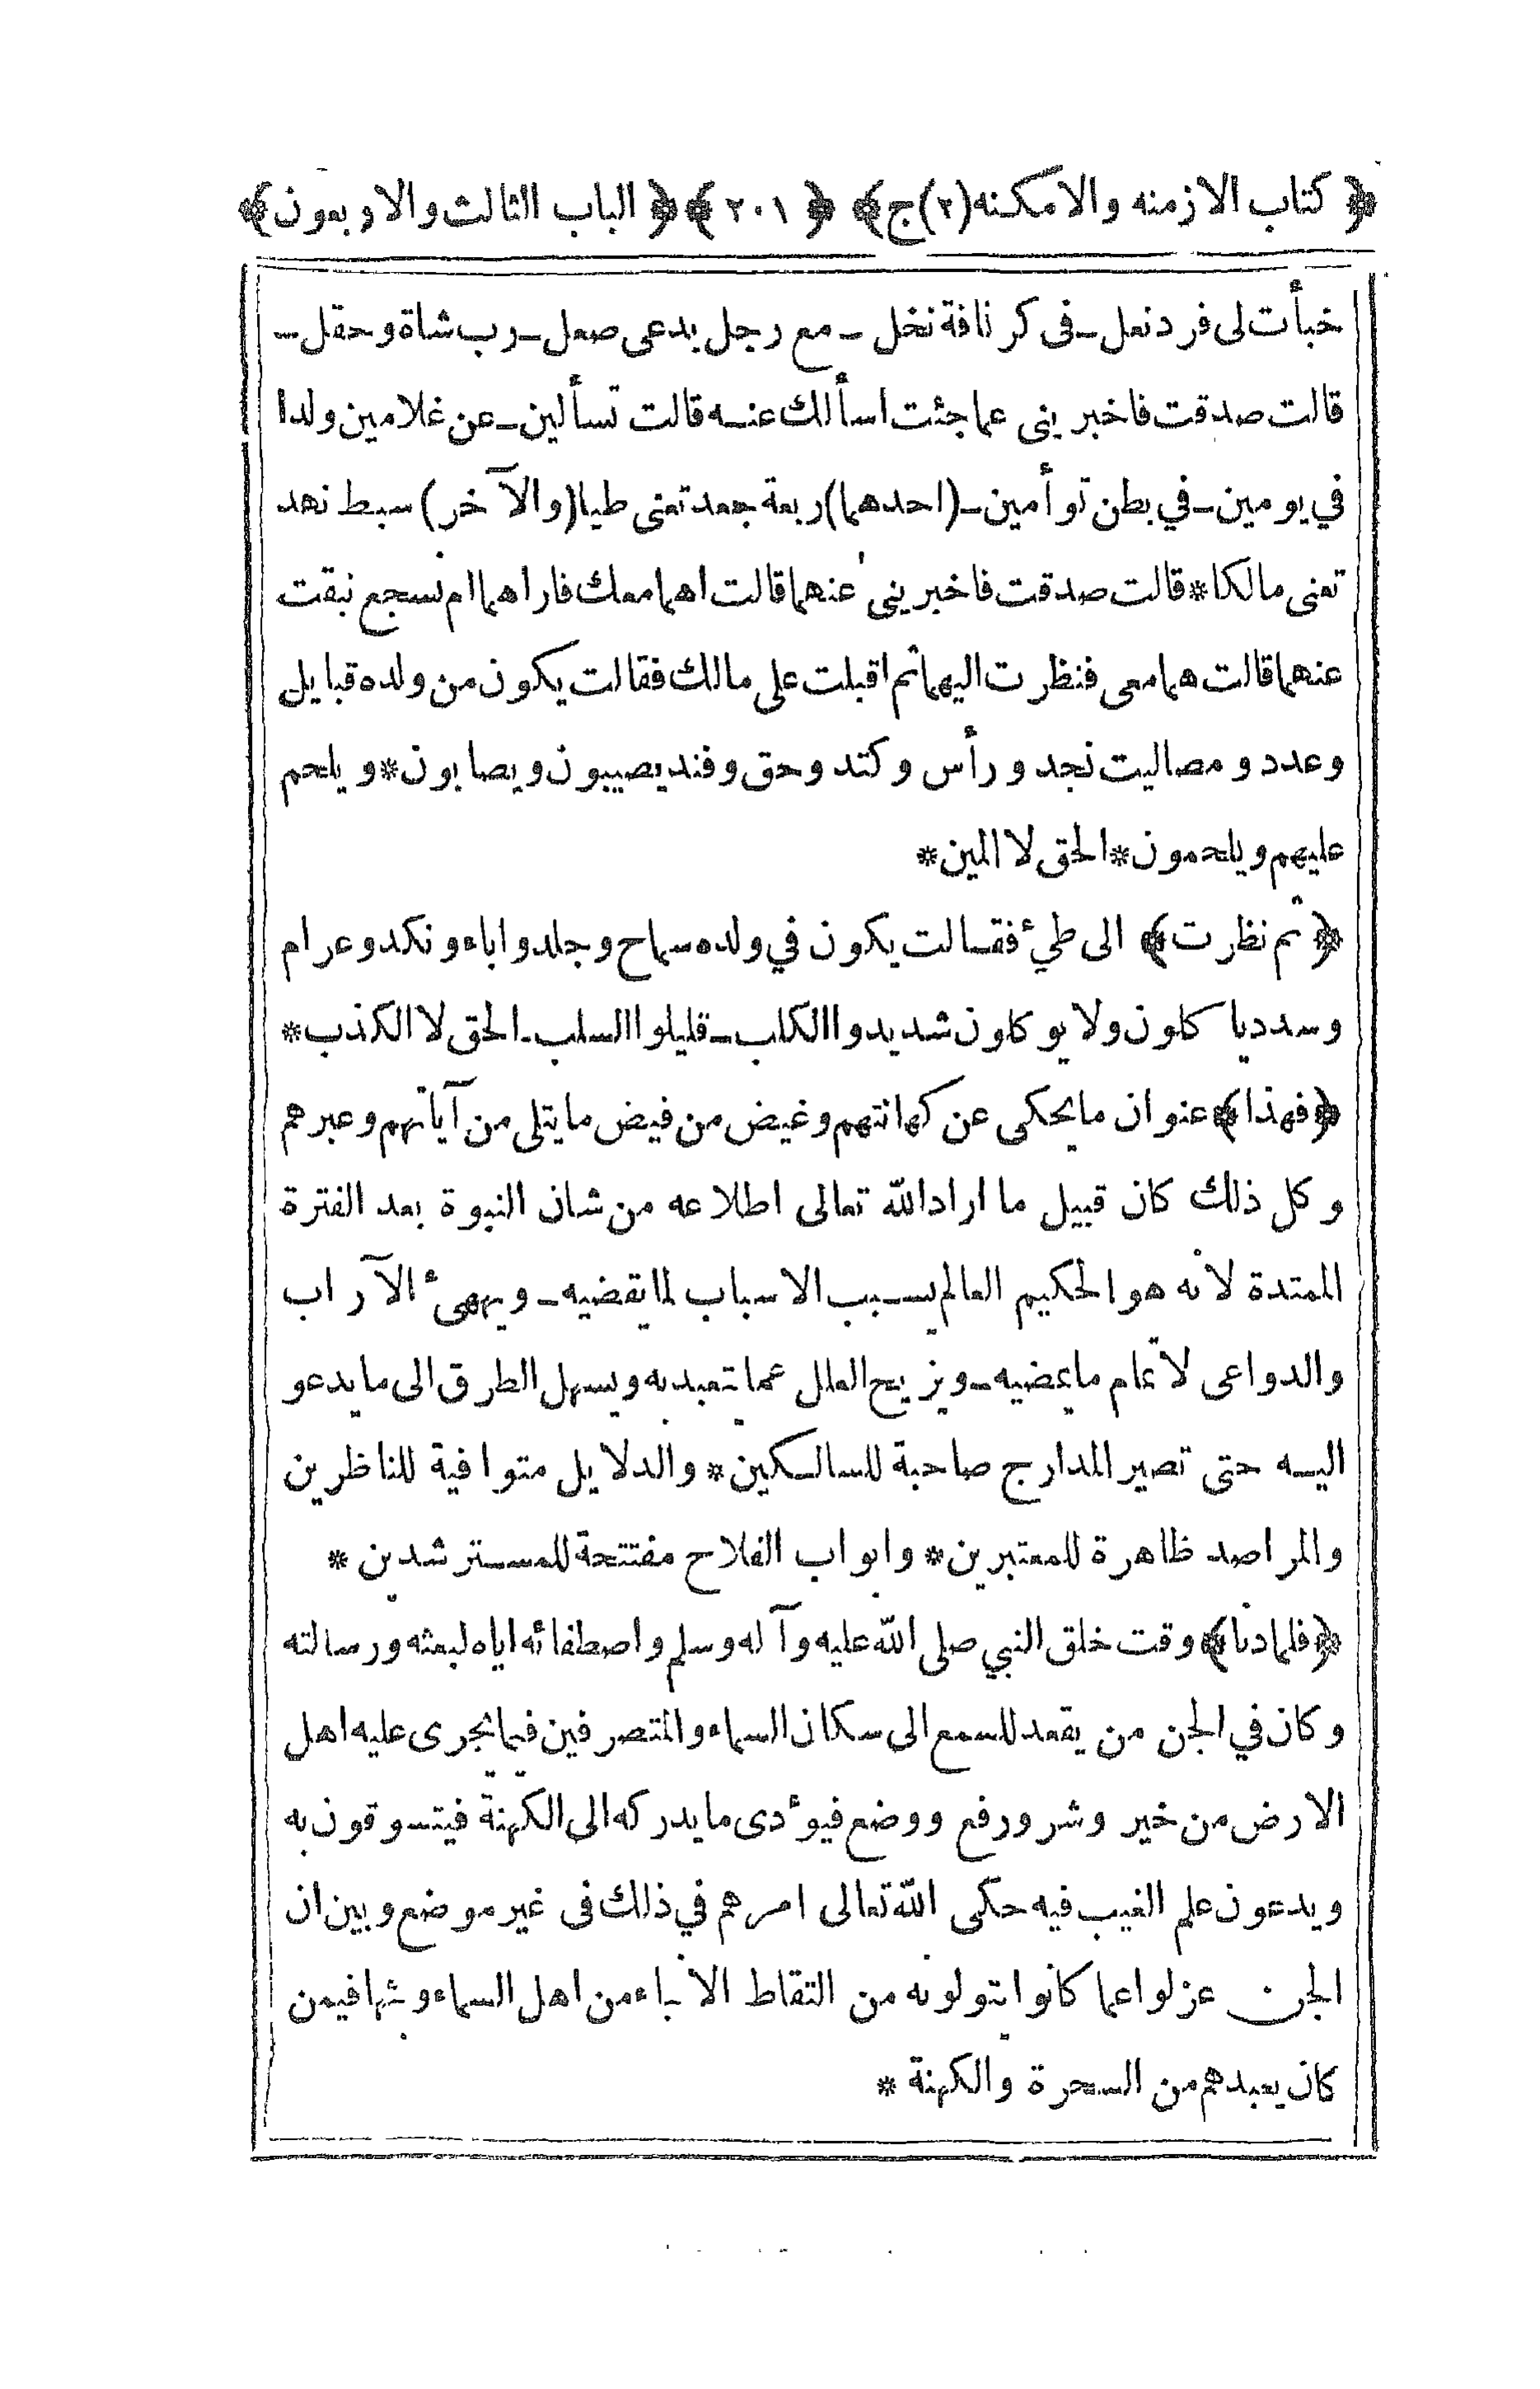 ﴿ كتاب الازمنه والامكنه (٢) ج ﴾ ﴿ ٢٠١ ﴾ ﴿ الباب الثالث والاربعون ﴾
خبأت لى فرد نعل ـ فى كرنافة نخل ـ مع رجل يدعى صعل ـ رب شاة وحقل ـ
قالت صدقت فاخبرينى عما جئت اسألك عنه قالت تسألين ـ عن غلامين ولدا
في يومين ـ في بطن توأمين ـ (احدهما) ربعة جعد تعنى طيا (والآخر) سبط نهد
تعنى مالكا * قالت صدقت فاخبرينى عنهما قالت اهما معك فاراهما ام نسجع نبقت
عنهما قالت هما معى فنظرت اليهما ثم اقبلت على مالك فقالت يكون من ولده قبايل
وعدد و مصاليت نجد و رأس وكتد وحق وفند يصيبون ويصابون * و يلحم
عليهم ويلحمون * الحق لا المين *
﴿ ثم نظرت ﴾ الى طيئ فقالت يكون في ولده سماح وجلد واباء ونكد وعرام
وسدد يا كلون ولا يوكلون شديدوا الكلب ـ قليلوا السلب ـ الحق لا الكذب *
﴿ فهذا ﴾ عنوان مايحكى عن كهانتهم وغيض من فيض ما يتلى من آياتهم وعبرهم
وكل ذلك كان قبيل ما اراد الله تعالى اطلاعه من شان النبوة بعد الفترة
الممتدة لانه هو الحكيم العالم يسبب الاسباب لما يقضيه ـ ويهيئ الآراب
والدواعى لاتمام مايمضيه ـ ويزيح العلل عما تعبد به ويسهل الطرق الى ما يدعو
اليه حتى تصير المدارج صاحبة للسالكين * والدلايل متوافية للناظرين
والمراصد ظاهرة للمعتبرين * وابواب الفلاح مفتتحة للمسترشدين *
﴿ فلما دنا ﴾ وقت خلق النبي صلى الله عليه وآله وسلم واصطفائه اياه لبعثه ورسالته
وكان في الجن من يقعد للسمع الى سكان السماء والمتصرفين فيما يجرى عليه اهل
الارض من خير وشر ورفع ووضع فيوءدى ما يدركه الى الكهنة فيتسوقون به
ويدعون علم الغيب فيه حكى الله تعالى امرهم في ذلك فى غير موضع وبين ان
الجن عزلوا عما كانوا يتولونه من التقاط الانباء من اهل السماء وبثها فيمن
كان يعبدهم من السحرة والكهنة *